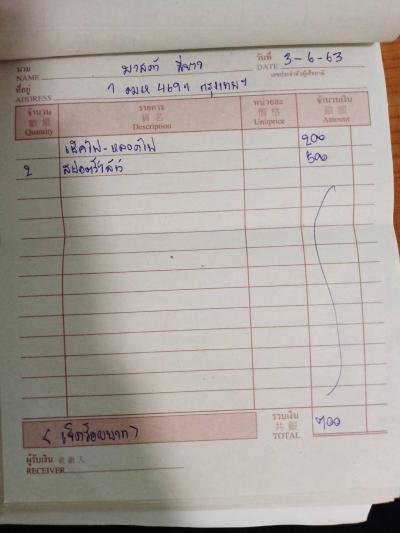 นาม NAME มาสด้า สีขาว วันที่ DATE 3-6-63
เลขประจำตัวผู้เสียภาษี
ที่อยู่ ADDRESS 1 ฒมห 4691 กรุงเทพฯ
จำนวน 數量 Quantity รายการ 貨名 Description หน่วยละ 價格 Unitprice จำนวนเงิน 銀額 Amount
เช็คไฟ-หลอดไฟ 200
2 500
รวมเงิน 共銀 TOTAL 700
(เจ็ดร้อยบาท)
ผู้รับเงิน 收銀人
RECEIVER